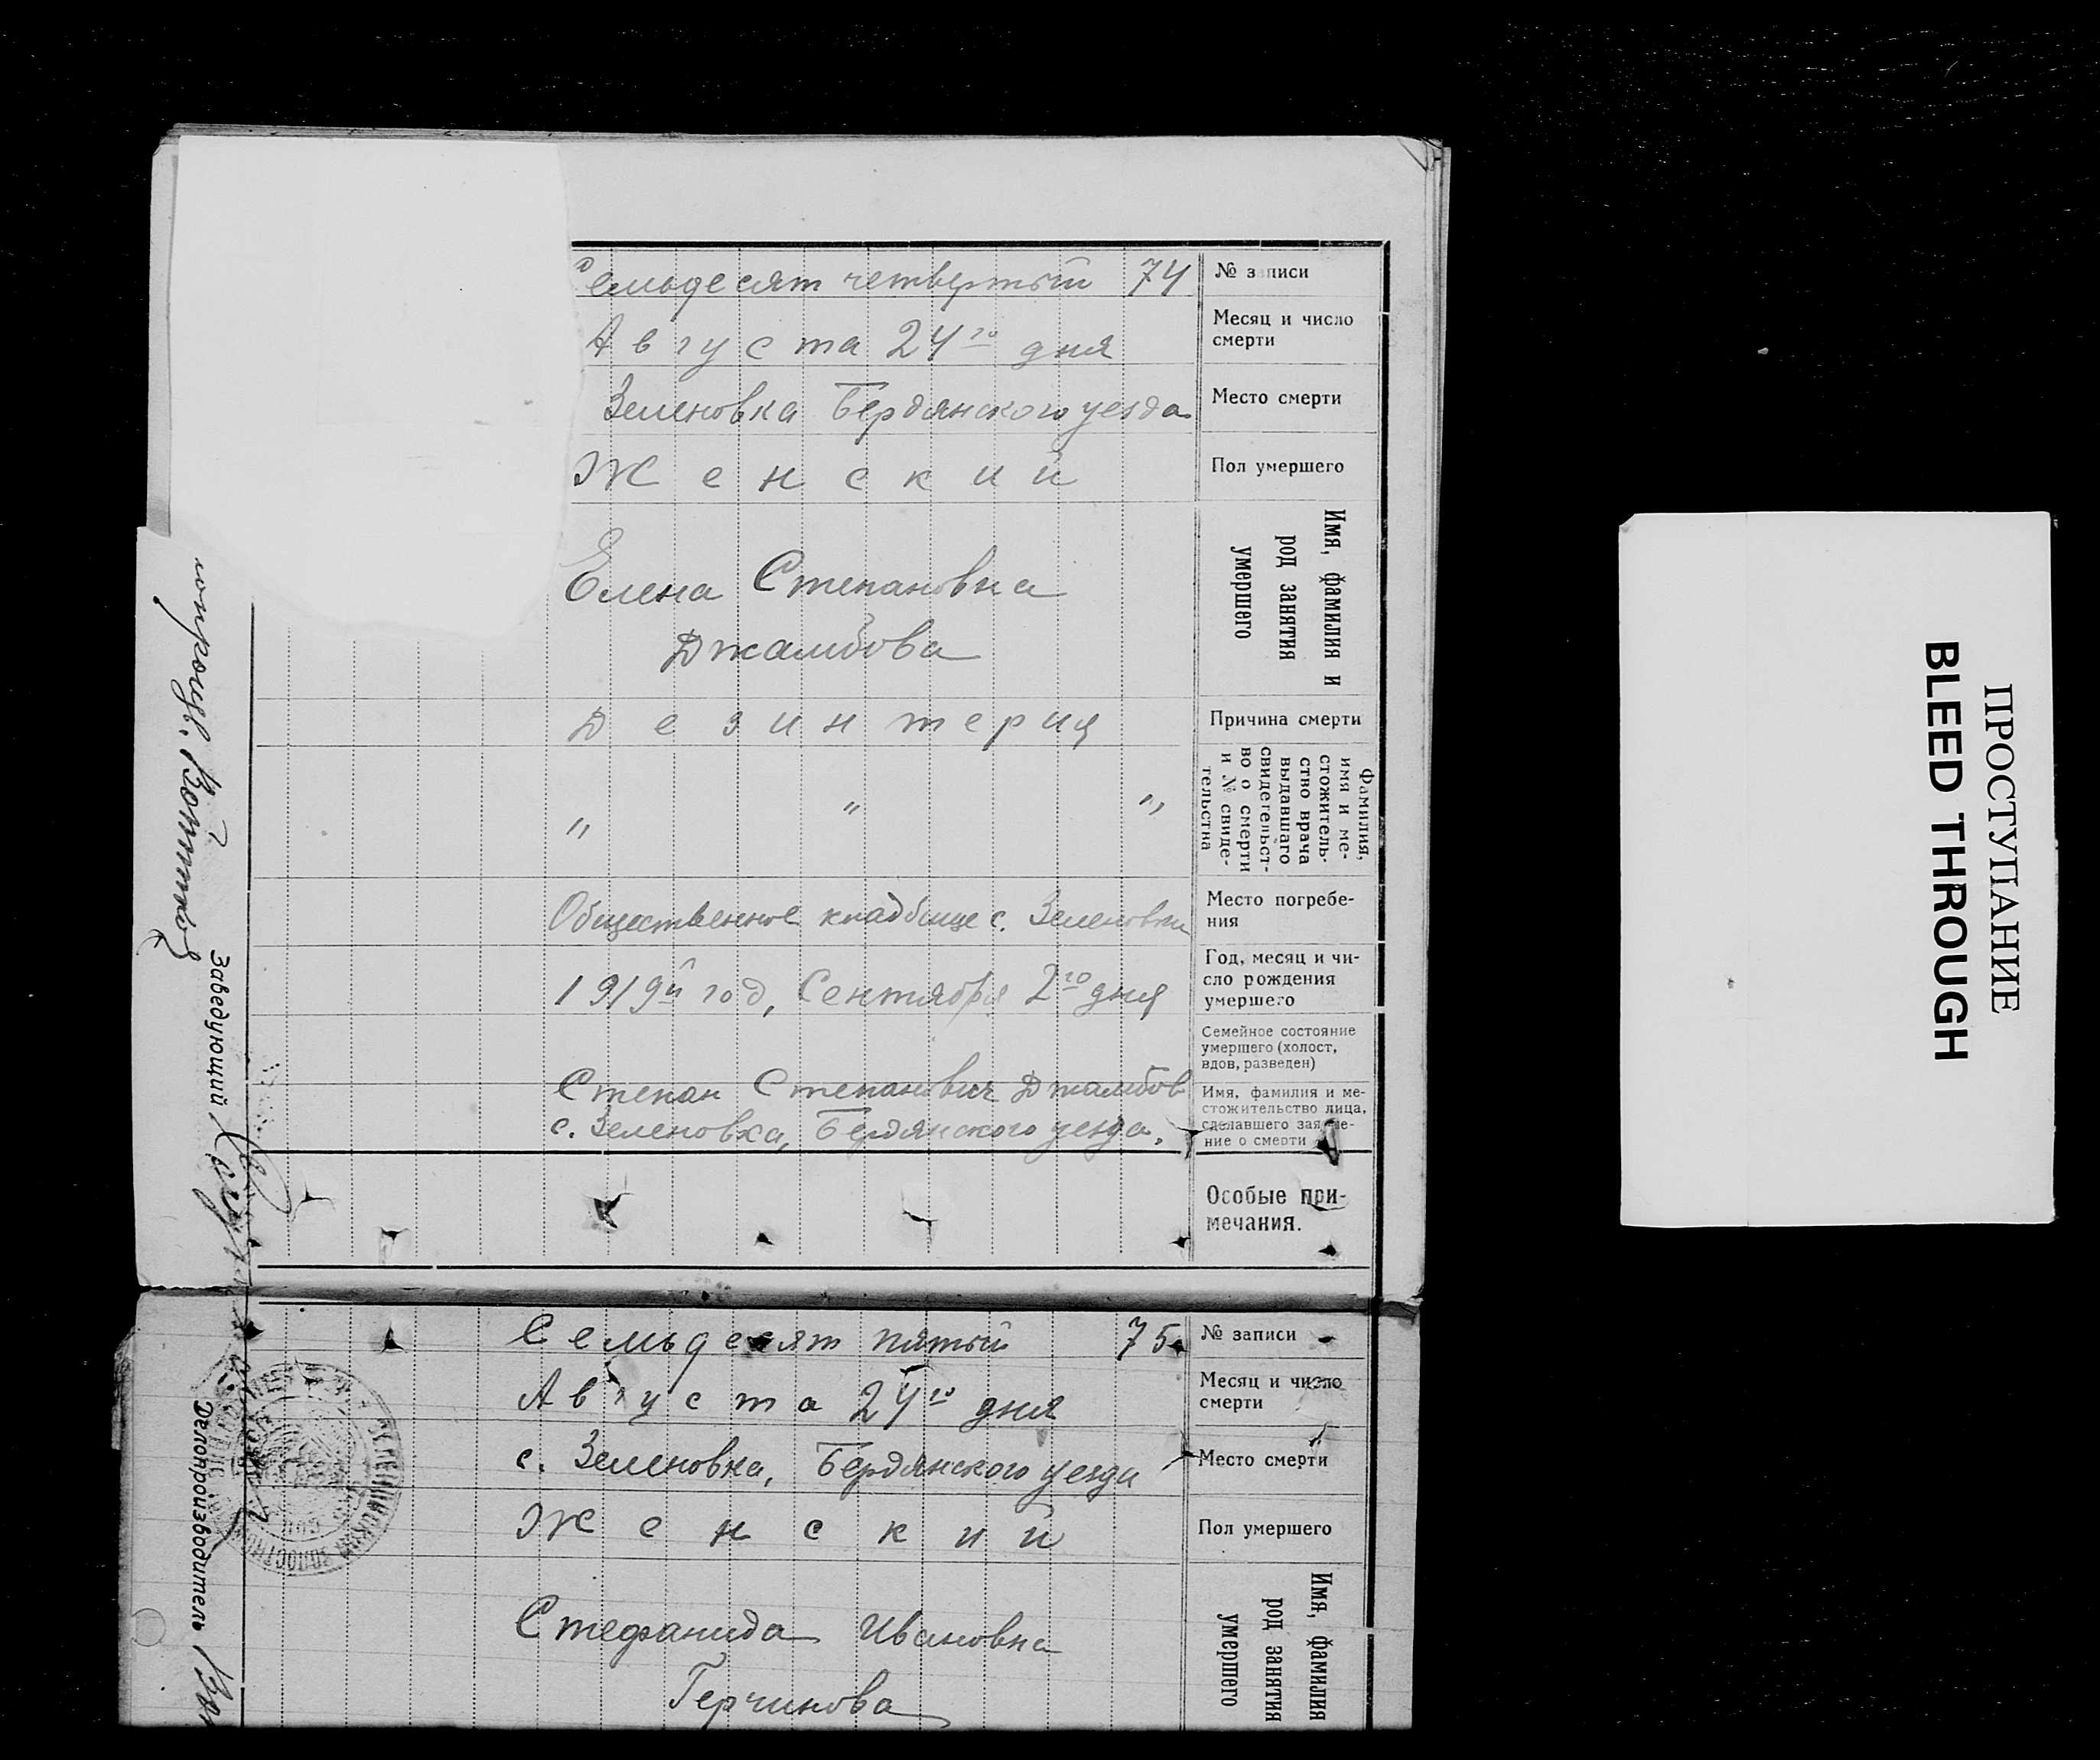 № записи
Семьдесят четвертый 74
Месяц и число смерти
Августа 24го дня
Место смерти
Зеленовка Бердянского уезда
Пол умершего
Женский
Имя, фамилия и род занятия умершего
Елена Степановна
Джамбова
Причина смерти
Дезинтерия
Фамилия, имя и местожительство врача выдавшего свидетельство о смерти и № свидетельства
" " "
Место погребения
Общественное кладбище с. Зеленовки
Год, месяц и число рождения умершего
1919й год, Сентября 2го дня
Семейное состояние умершего (холост, вдов, разведен)
Имя, фамилия и местожительство лица, сделавшего заявление о смерти
Степан Степанович Джамбов
с. Зеленовка, Бердянского уезда.
Особые примечания.
№ записи
Семьдесят пятый 75
Месяц и число смерти
Августа 24го дня
Место смерти
с. Зеленовка, Бердянского уезда
Пол умершего
Женский
Имя, фамилия род занятия умершего
Стефанида Ивановна
Герчинова
Заведующий
Делопроизводитель
ПРОСТУПАНИЕ
BLEED THROUGH